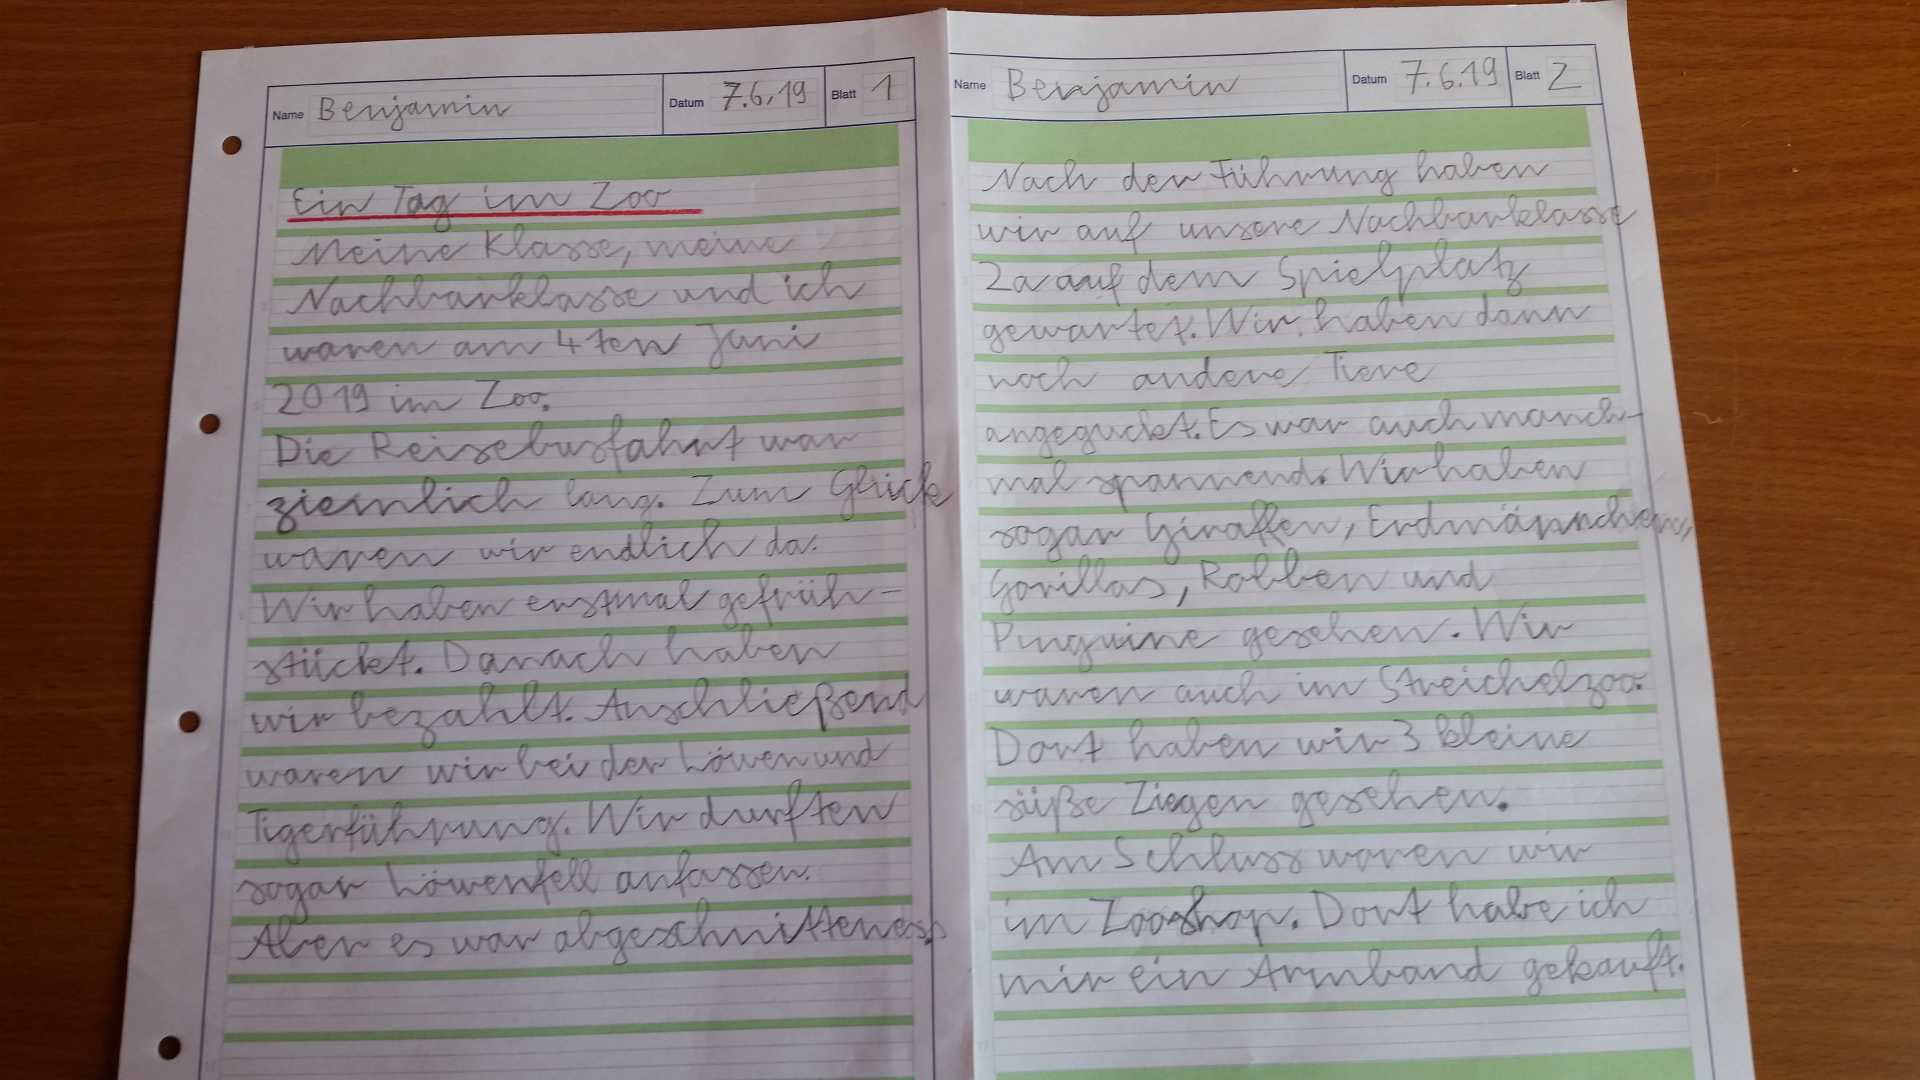 Name Benjamin Datum 7.6.19 Blatt 1
Ein Tag im Zoo
Meine Klasse, meine
Nachbarklasse und ich
waren am 4ten Juni
2019 im Zoo.
Die Reisebusfahrt war
ziemlich lang. Zum Glück
waren wir endlich da.
Wir haben erstmal gefrüh-
stückt. Danach haben
wir bezahlt. Anschließend
waren wir bei der Löwen und
Tigerführung. Wir durften
sogar Löwenfell anfassen.
Aber es war abgeschnittenes.
Name Benjamin Datum 7.6.19 Blatt 2
Nach der Führung haben
wir auf unsere Nachbarklasse
2a auf dem Spielplatz
gewartet. Wir haben dann
noch andere Tiere
angeguckt. Es war auch manch-
mal spannend. Wir haben
sogar Giraffen, Erdmännchen,
Gorillas, Robben und
Pinguine gesehen. Wir
waren auch im Streichelzoo.
Dort haben wir 3 kleine
süße Ziegen gesehen.
Am Schluss waren wir
im Zooshop. Dort habe ich
mir ein Armband gekauft.